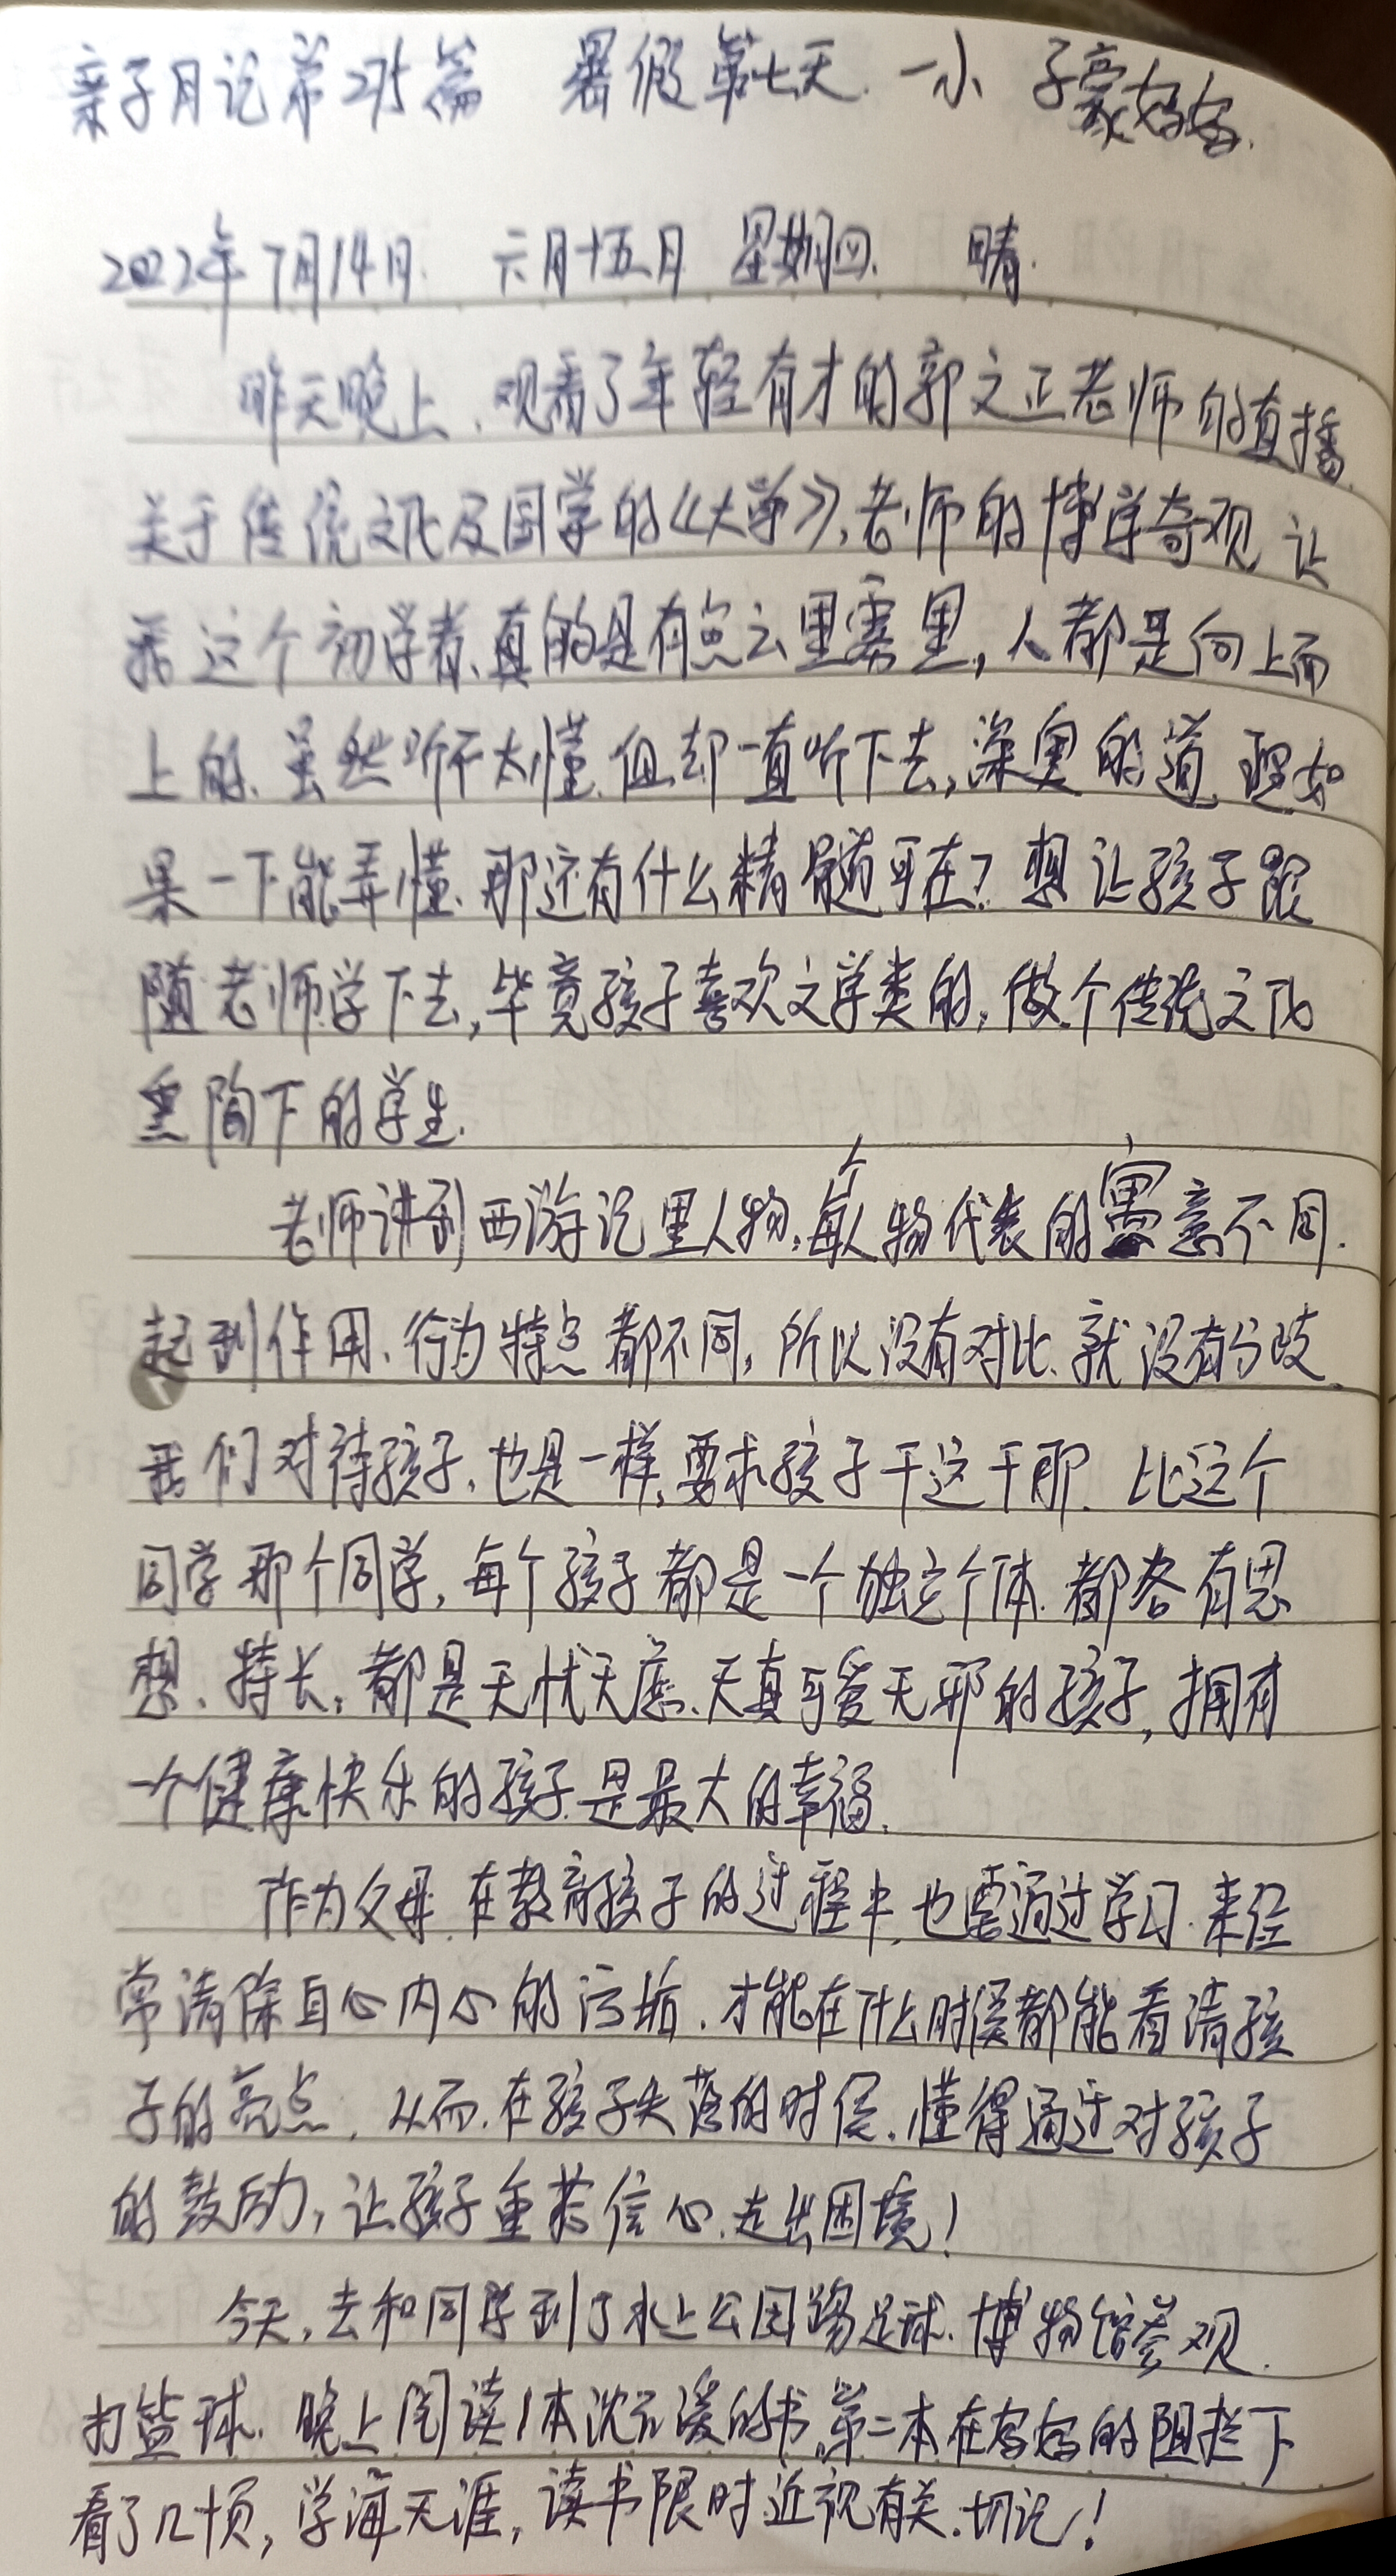 亲子月记第275篇 暑假第七天 一小 子豪妈妈.
2022年7月14日. 六月十五月 星期四. 晴.
昨天晚上、观看了年轻有才的郭文正老师的直播
关于传统文化及国学的《大学》,老师的博学奇观 让
我这个初学者、真的是有点云里雾里,人都是向上而
上的、虽然听不太懂、但却一直听下去,深奥的道理如
果一下能弄懂、那还有什么精髓可在?想让孩子跟
随老师学下去,毕竟孩子喜欢文学类的,做个传统文化
熏陶下的学生.
老师讲到西游记里人物,每个人物代表的寓意不同.
起到作用、行为特点都不同,所以没有对比、就没有分歧、
我们对待孩子,也是一样,要求孩子干这干那. 比这个
同学那个同学,每个孩子都是一个独立个体.都各有思
想、特长,都是无忧无虑、天真可爱无邪的孩子,拥有
一个健康快乐的孩子.是最大的幸福.
作为父母.在教育孩子的过程中,也要通过学习.来经
常清除自心内心的污垢.才能在什么时候都能看清孩
子的亮点.从而.在孩子失落的时候.懂得通过对孩子
的鼓励,让孩子重拾信心.走出困境!
今天,去和同学到了水上公园踢足球.博物馆参观.
打篮球.晚上阅读1本沈石溪的书,第二本在妈妈的阻拦下
看了几十页,学海无涯,读书限时近视有关.切记!